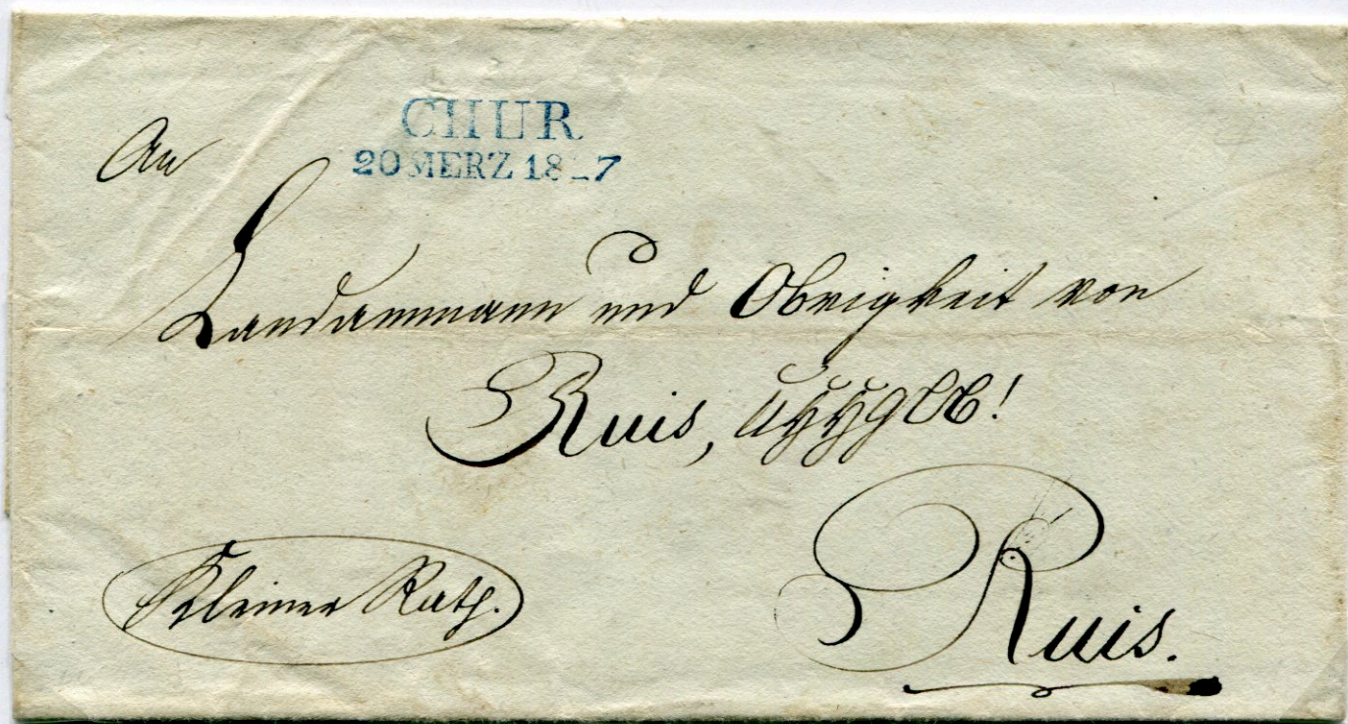 CHUR
20 MERZ 18_7
An
Landammann und Obrigkeit von
Ruis,
Ruis.
Kleiner Rath.